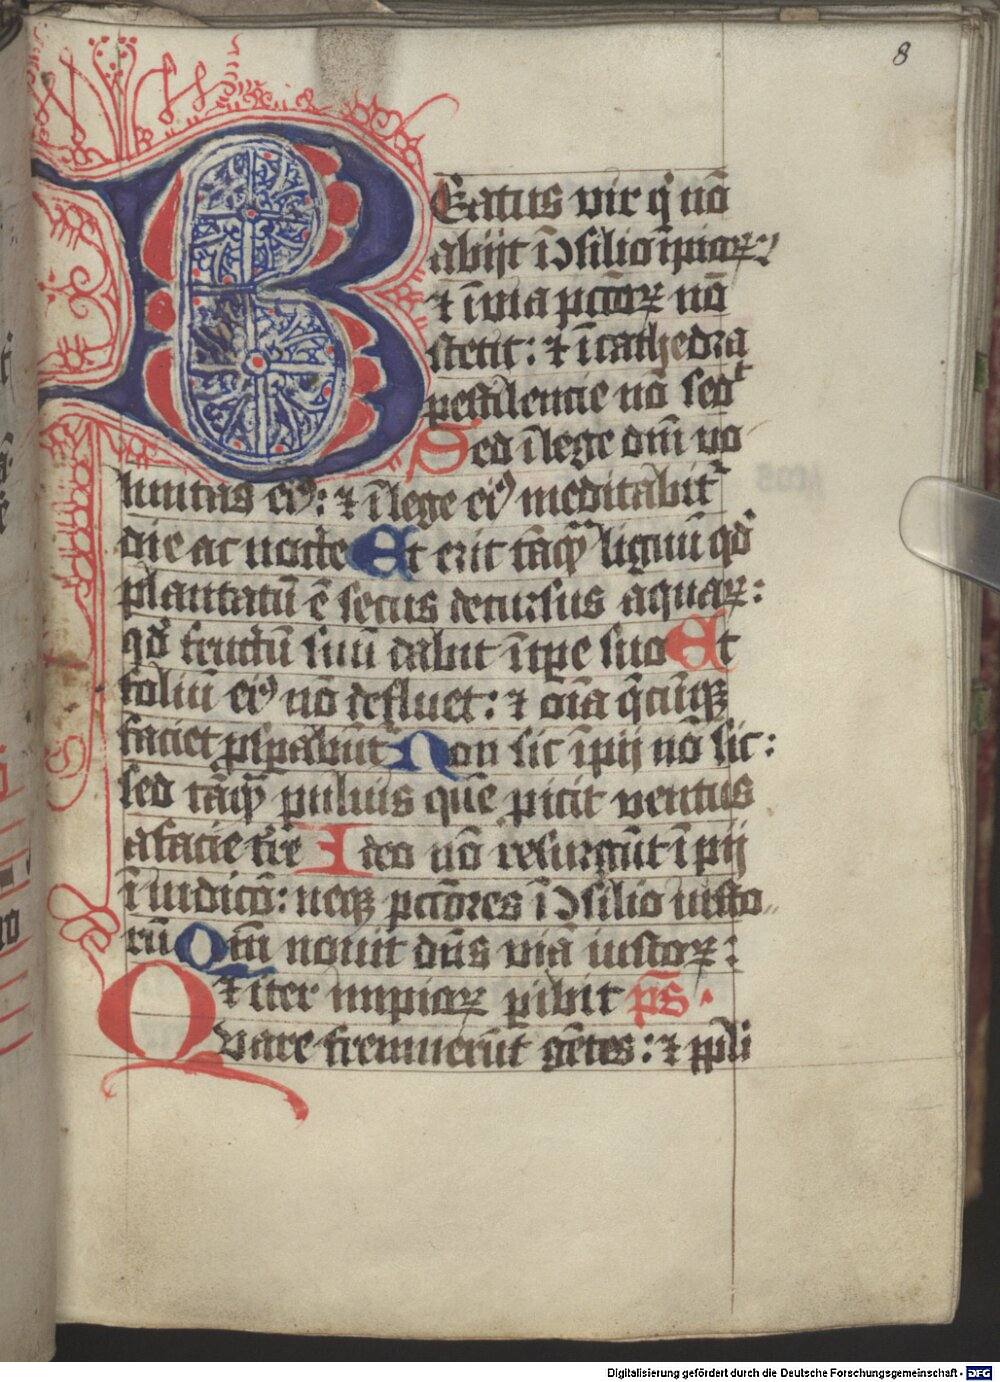 8
BEatus vir q̇ nō
abijt ī ꝯsilio īpioꝝ
⁊ ī via pctōꝝ nō
stetit: ⁊ ī cathedra
pestilencie nō sedᵗ
Sed ī lege dn̄i vo
luntas eiꝰ: ⁊ ī lege eiꝰ meditabit᷑
die ac nocte Et erit tāqͣꝫ lignū qd̓
plantatū ē secus decursus aquaꝝ:
qd̓ fructū suū dabit ī tpe suo Et
foliū eiꝰ nō defluet: ⁊ oīa q̄cūqꝫ
faciet ꝓspabūt Non sic īpij nō sic:
sed tāqͣꝫ puluis quē ꝓicit ventus
a facie tr̄e Ideo nō resurgūt īpij
ī iudicō: neqꝫ pctōres ī ꝯsilio iusto
rū Qm̄ nouit dn̄s viā iustoꝝ:
⁊ iter impioꝝ ꝑibit ps̄.
Qvare fremuerūt gētes: ⁊ ppl̄i
Digitalisierung gefördert durch die Deutsche Forschungsgemeinschaft - DFG